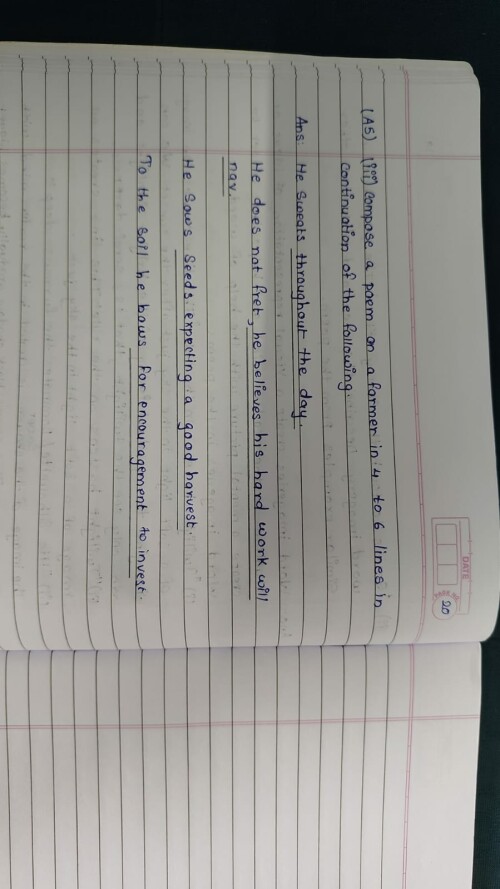 DATE
PAGE NO.
20
(A5) (iii) Compose a poem on a farmer in 4 to 6 lines in
continuation of the following.
Ans: He sweats throughout the day.
He does not fret, he believes his hard work will
pay.
He sows seeds expecting a good harvest.
To the soil he bows for encouragement to invest.